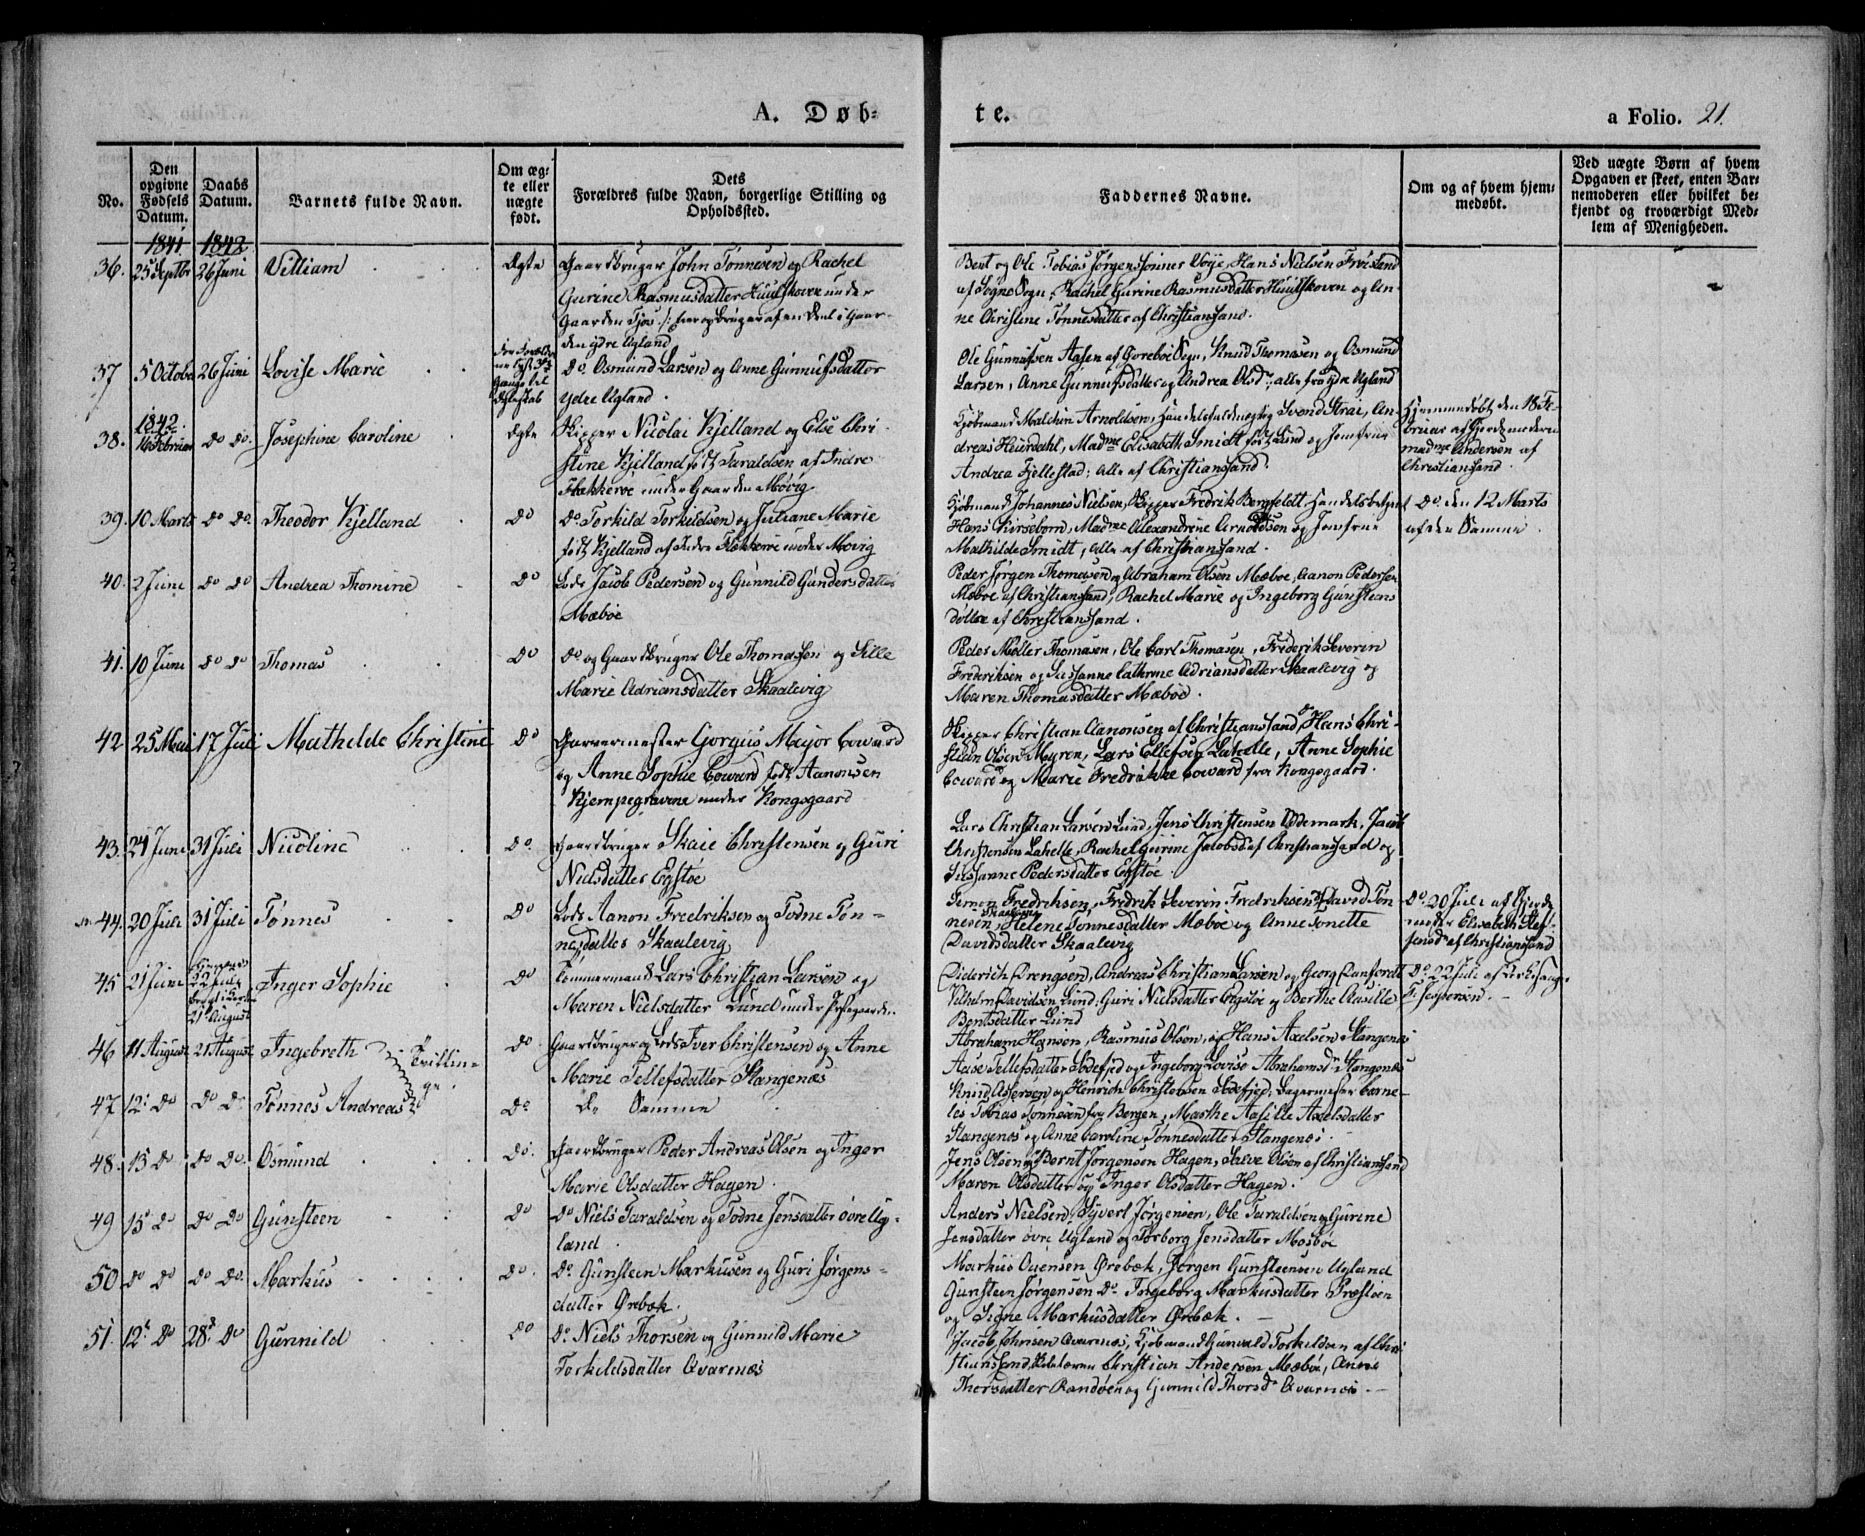 A. Døb-
te.
a Folio. 21.
No.
Den opgivne Fødsels Datum.
Daabs Datum.
Barnets fulde Navn.
Om ægte eller uægte født.
Dets Forældres fulde Navn, borgerlige Stilling og Opholdssted.
Faddernes Navne.
Om og af hvem hjemmedøbt.
Ved uægte Børn af hvem Opgaven er skeet, enten Barnemoderen eller hvilket bekjendt og troværdigt Medlem af Menigheden.
1841 1842
36. 25 Septbr 26 Juni William Ægte Gaardbruger John Tønnesen og Rachel
Gurine Rasmusdatter Huulskoven under
Gaarden Tjos
den ydre Ugland
Bent og Ole Tobias Jørgensønner Voye, Hans Nielsen Frøisland
af Søgne Sogn, Rachel Gurine Rasmusdatter Huulskoven og An-
ne Christine Tønnesdatter af Christiansand.
37 5 October 26 Juni Lovise Marie
Do. Osmund Larsen og Anne Gunnufsdatter
ydre Ugland.
Ole Gunnufsen Aasen af Sogn, Knud Thomasen og Osmund
Larsen, Anne Gunnufsdatter og Andrea Olsd., alle fra ydre Ugland
1842.
38. 16 Februar Do Do. Josephine Caroline Ægte Skipper Nicolai Kjelland og Else Chri-
stine Kjelland født Taraldsen af Indre
Flekkerøe under Gaarden Møvig
Kjøbmand Malthin Arnoldsen, Handelsfuldmægtig Svend Strai, An-
dreas Heierdahl, Madme Elisabeth Smidt født Lund og Jomfrue
Andrea Fjellestad: alle af Christiansand.
Hjemmedøbt den 18 Fe-
bruar af Gjordemoderen
madme Andersen af
Christiansand.
39. 10 Marts Do Do. Theodor Kjelland Do Do Torkild Torkildsen og Juliane Marie
født Kjelland af Indre Flekkerøe under Møvig
Kjøbmand Johannes Nielsen, Skipper Fredrik Bergfeldt, Handelsbetjent
Hans Kirsebom, Madme Alexandrine Arnoldsen og Jomfrue
Mathilde Smidt, alle af Christiansand.
Do. den 12 Marts
af den Samme.
40. 2 Juni Do Do Andrea Thomine Do Lods Jacob Pedersen og Gunnild Gundersdatter
Mæbøe
Peder Jørgen Thomasen og Abraham Olsen Mæbøe, Aanon Pedersen
Mæbøe af Christiansand, Rachel Marie og Ingeborg Gunsteens
døttre af Christiansand.
41. 10 Juni Do Do Thomas Do Do og Gaardbruger Ole Thomasen og Sille
Marie Adriansdatter Skaalevig
Peder Møller Thomasen, Ole Carl Thomasen, Frederik Severin
Frederiksen og Susanne Cathrine Adriansdatter Skaalevig og
Maren Thomasdatter Mæbøe.
42 25 Mai 17 Juli Mathilde Christine Do Garvermester Gorgius Major Coward
og Anne Sophie Coward født Aanonsen
Kjempegravene under Kongsgaard
Skipper Christian Aanonsen af Christiansand, Hans Chri-
stian Olsen Myren, Lars Ellefsen Lahelle, Anne Sophie
Coward og Marie Fredrikke Coward fra Kongsgaard.
43. 24 Juni 31 Juli Nicoline Do. Gaardbruger Skaie Christensen og Guri
Nielsdatter Egstøe
Lars Christian Larsen Lund, Jens Christensen Ødemark, Jacob
Christensen Lahelle, Rachel Gurine Jacobsd. af Christiansand og
Susanne Pedersdatter Egstøe.
44. 20 Juli 31 Juli Tønnes Do Lods Aanon Fredriksen og Todne Tøn-
nesdatter Skaalevig
Fredriksen, Fredrik Severin Fredriksen og David Tøn-
nesen Skaalevig, Helene Tønnesdatter Mæbøe og Anne Tonette
Davidsdatter Skaalevig
Do. 20 Juli af Gjorde-
moder Elisabeth Stef-
fensd. af Christiansand
45 21 Juni 21 August Inger Sophie Do Tømmermand Lars Christian Larsen og
Maren Nielsdatter Lund under
Diderich Drengsen, Andreas Christian Larsen og Georg Danfordt
Vilhelm Davidsen Lund, Guri Nielsdatter Egstøe og Berthe Aasille
Bentsdatter Lund
Do. 22 Juli af Kirkesanger
F. Jespersen.
46 11 August 21 August Ingebreth Tvillin-
ge. Do. Gaardbruger og Lods Iver Christensen og Anne
Marie Tellefsdatter Stangenæs
Abraham Hansen, Rasmus Olsen, og Hans Axelsen Stangenæs
Aase Tellefsdatter Stødefjed og Ingeborg Lovise Abrahamsd. Stangenæs
47 12. Do Do Do. Tønnes Andreas Do Do Samme
Knud Assersen og Henrich Christensen Bagermester Corne-
les Tobias Tønnesen fra Bergen, Marthe Aasille Axelsdatter
Stangenæs og Anne Caroline Tønnesdatter Stangenæs.
48. 13 Do Do Do. Osmund Do. Gaardbruger Peder Andreas Olsen og Inger
Marie Olsdatter Hagen.
Jens Olsen og Bernt Jørgensen Hagen, Salve Olsen af Christiansand
Maren Olsdatter og Inger Olsdatter Hagen.
49 15 Do Do Do Gunsteen Do Do Niels Taraldsen og Todne Jensdatter øvre Ug-
land.
Anders Nielsen, Syvert Jørgensen, Ole Taraldsen og Gurine
Jensdatter øvre Ugland og Torborg Jensdatter Mosbøe
50 Do Do Do Do. Markus Do. Do. Gunsteen Markusen og Guri Jørgens-
datter Ørebæk.
Markus Ouensen Ørebæk, Jørgen Gunsteensen Ugland
Gunsteen Jørgensen Do. Ingeborg Markusdatter Præstøen
og Signe Markusdatter Ørebæk.
51. 12 Do 28 Do Gunnild Do Do. Niels Thorsen og Gunnild Marie
Torkildsdatter Qvarenæs
Jacob Johnsen Qvarenæs, Kjøbmand Gunvald Torkildsen af Chri-
stiansand, Christian Andersen Mæbøe, Anne
Thorsdatter Randøen og Gunnild Thorsd. Qvarenæs.